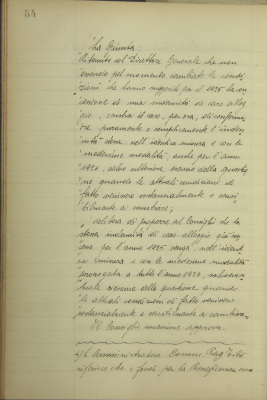 54
"La Giunta
Ritenuto col Direttore Generale che non
essendo pel momento cambiate le condi-
zioni che hanno suggerito per il 1925 la con-
cessione di una indennità di caro allog-
gio, sia il caso, per ora, di conferma-
re puramente e semplicemente l'inden-
nità stessa, nell'identica misura e con le
medesime modalità, anche per l'anno
1926, salvo ulteriore esame della questio-
ne quando le attuali condizioni di
fatto venissero sostanzialmente e sensi-
bilmente a cambiare;
delibera di proporre al Consiglio che la
stessa indennità di caro alloggio già
per l'anno 1925 venga nell'identi-
ca misura e con le medesime modalità
prorogata a tutto l'anno 1926, salvo
esame della questione quando
le attuali condizioni di fatto venissero
sostanzialmente e sensibilmente a cambiare.
Il Consiglio unanime approva.
L'Amministratore Comm. Rag.
riferisce che i per la